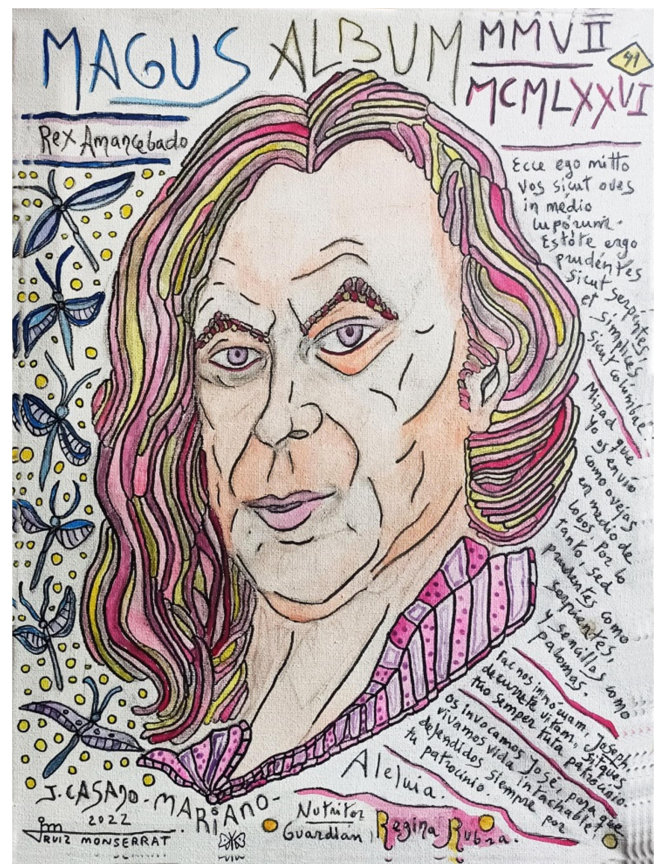 MAGUS ALBUM MMVII
41
MCMLXXVI
Rex Amancebado
Ecce ego mitto
vos sicut oves
in médio
lupórum.
Estóte ergo
prudéntes
sicut serpentes,
et simplices
sicut columbae
Mirad que
Yo os envío
como ovejas
en medio de
lobos. Por lo
tanto, sed
prudentes como
serpientes,
y sencillas como
palomas.
Fac nos innocuam, Joseph,
decurrere vitam, sitque
tuo semper tuta patrocinio.
os invocamos José, para que
vivamos vida intachable y
defendidos siempre por
tu patrocinio.
Aleluia.
J. CASANO - MARIANO -
2022
jrm
RUIZ MONSERRAT
Nutritor
Guardián
Regina Rubra.